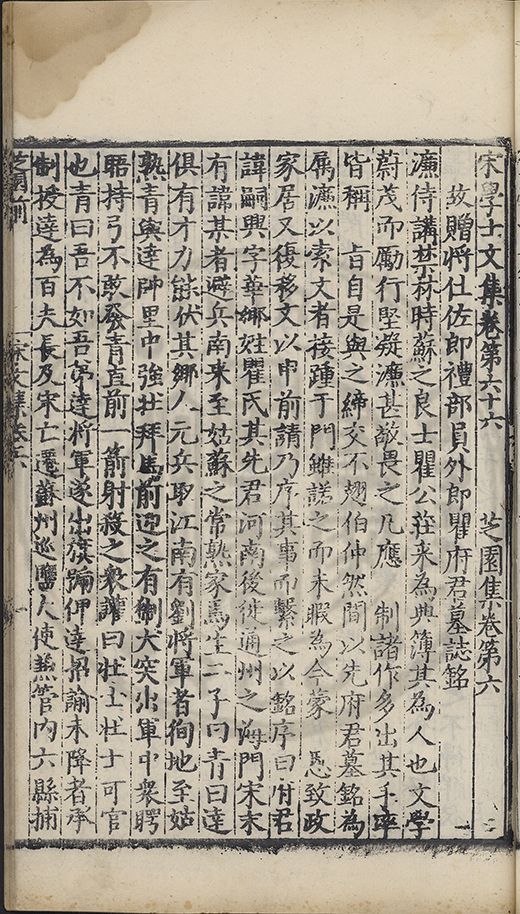 宋學士文集卷第六十六 芝園集卷第六
故贈將仕佐郎禮部員外郎瞿府君墓誌銘
濂侍講禁林時蘇之良士瞿公莊来為典簿其為人也文學
蔚茂而勵行堅凝濂甚敬畏之凡應 制諸作多出其手率
皆稱 旨自是與之締交不翅伯仲然間以先府君墓銘為
属濂以索文者接踵于門雖諾之而未暇為今蒙 恩致政
家居又復移文以申前請乃序其事而繫之以銘序曰府君
諱嗣興字華卿姓瞿氏其先君河南後徙通州之海門宋末
有諱某者避兵南来至姑蘇之常熟家焉生二子曰青曰達
俱有才力能伏其鄉人元兵取江南有劉將軍者徇地至姑
熟青與達帥里中強壮拜馬前迎之有猘犬突出軍中衆睜
眙持弓不敢發青直前一箭射殺之衆讙曰壮士壮士可官
也青曰吾不如吾弟達將軍遂出旗牓俾達招諭未降者承
制授達為百夫長及宋亡遷蘇州巡鹽大使兼管内六縣捕
芝園前 宋文集卷六 一